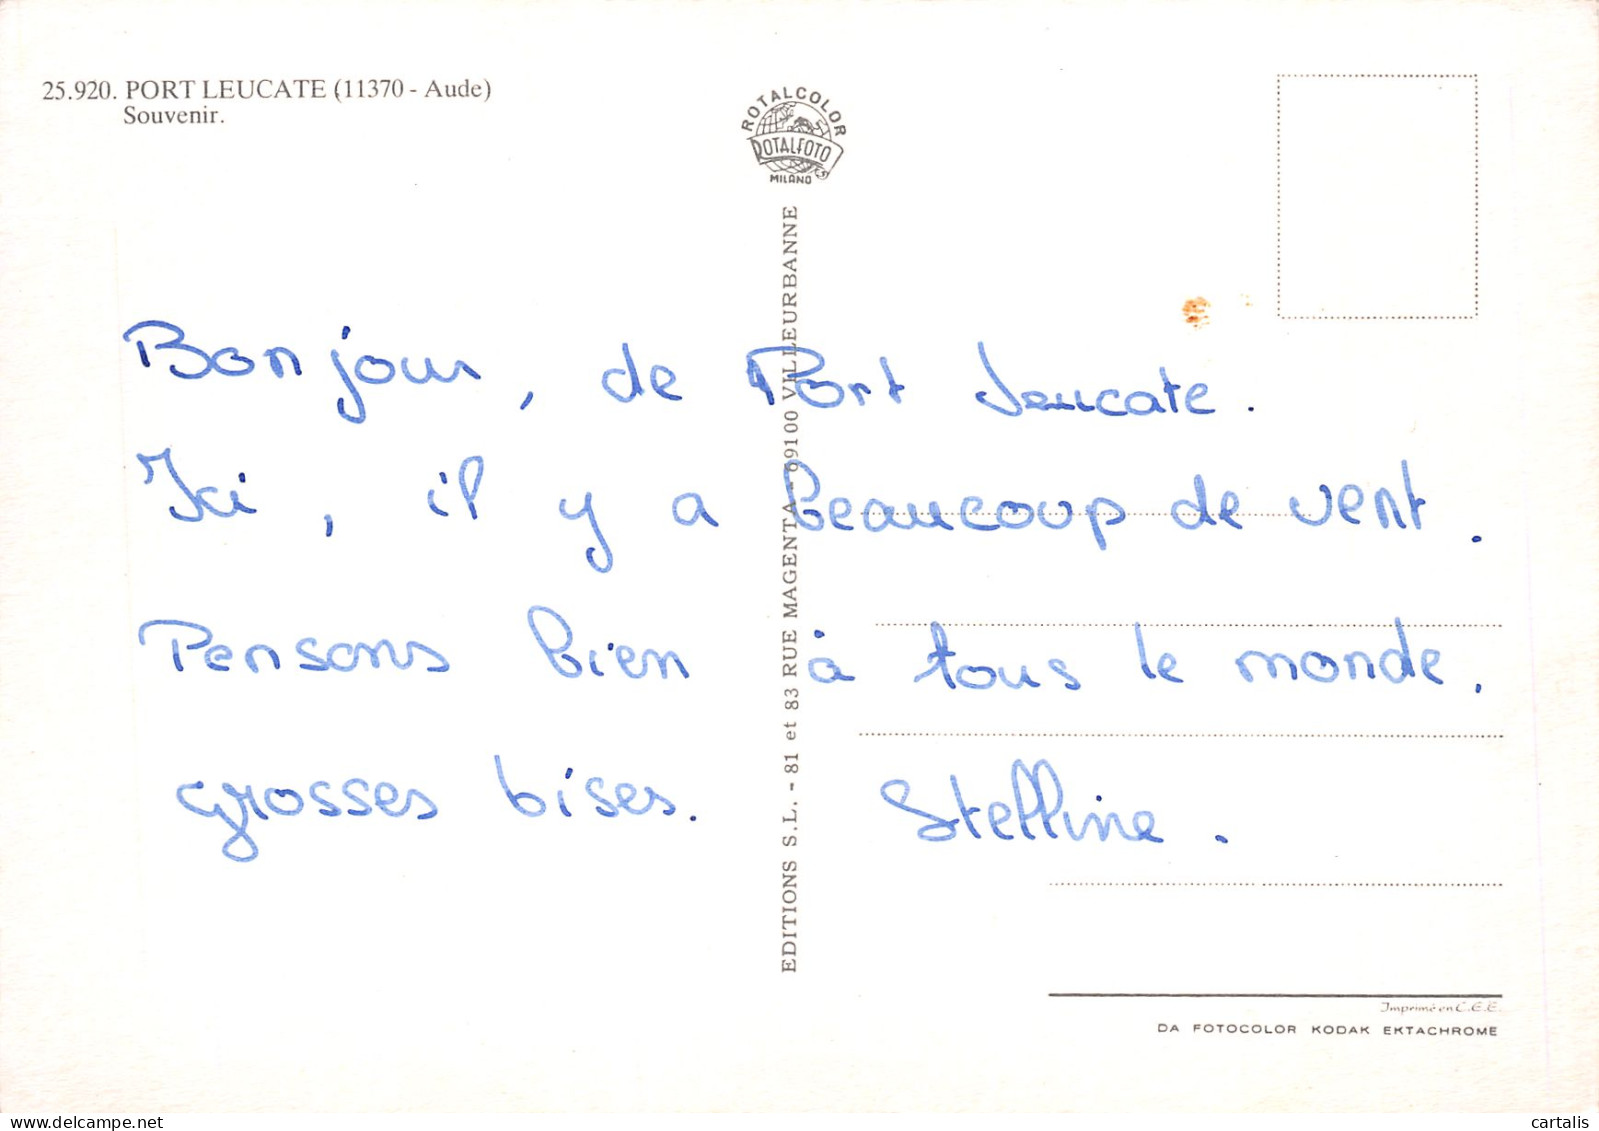 25.920. PORT LEUCATE (11370 - Aude)
Souvenir.
ROTALCOLOR
ROTALFOTO
MILANO
EDITIONS S.L. - 81 et 83 RUE MAGENTA - 69100 VILLEURBANNE
Bonjour, de Port Leucate.
Ici, il y a beaucoup de vent.
Pensons bien à tous le monde.
grosses bises. Stelline.
Imprimé en C.E.E.
DA FOTOCOLOR KODAK EKTACHROME
cartalis